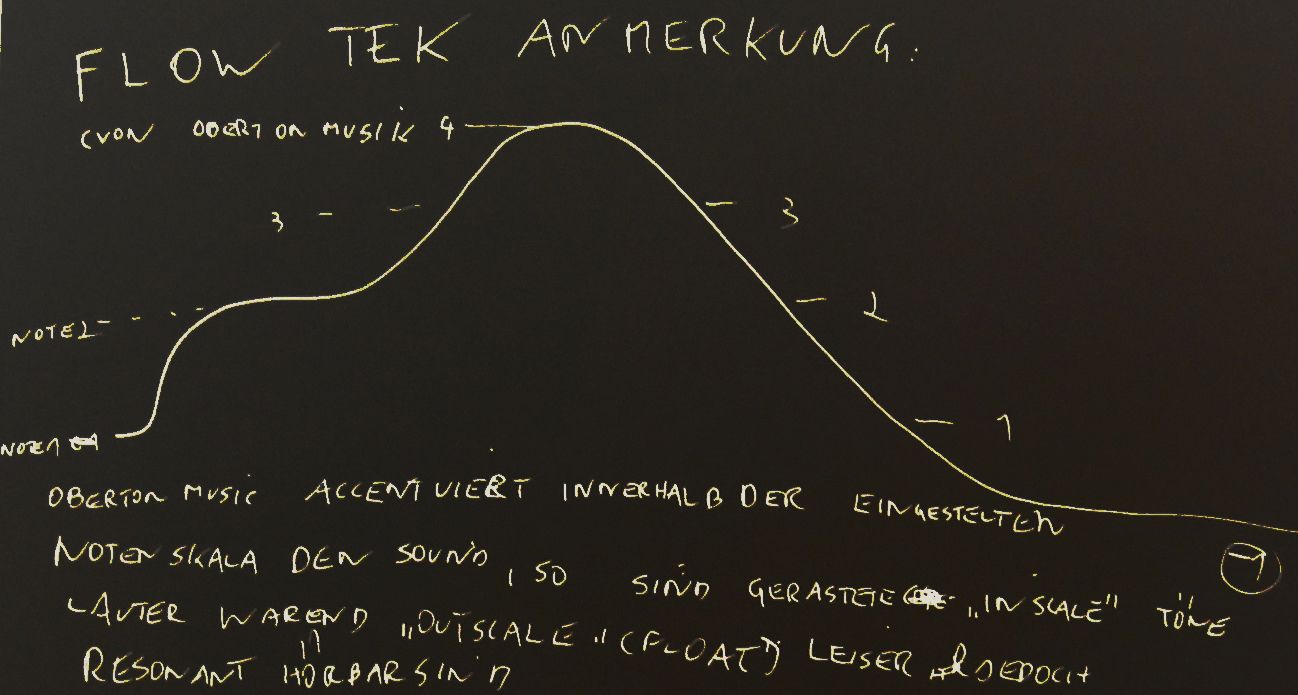 FLOW TEK ANMERKUNG:
(VON OBERTON MUSIK 4
3 - - - 3
NOTE2 - - - - 2
NOTE1 - 1
OBERTON MUSIC ACCENTUIERT INNERHALB DER EINGESTELTEN
NOTENSKALA DEN SOUND, SO SIND GERASTETE „INSCALE" TÖNE
-1
LAUTER WAREND „OUTSCALE" (FLOAT) LEISER JEDOCH
RESONANT HÖRBAR SIND